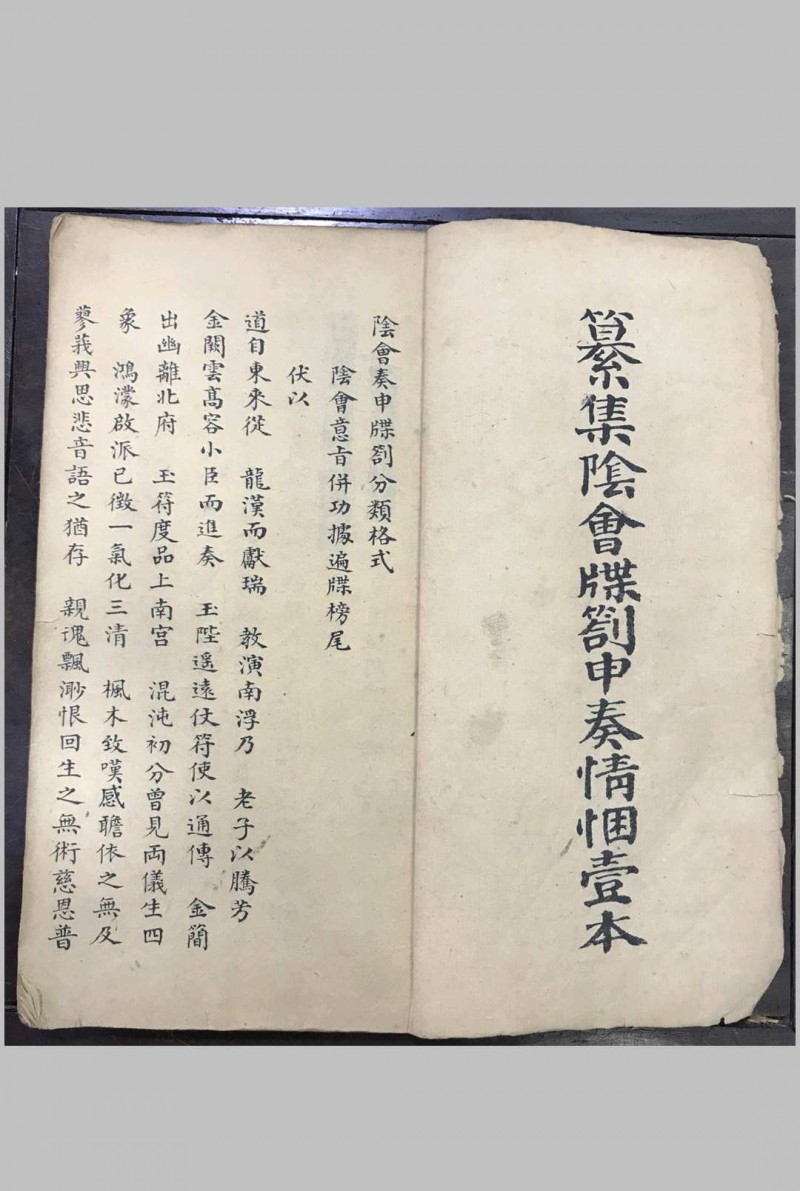 纂集陰會牒劄申奏情悃壹本
陰會奏申牒劄分類格式
陰會意旨併功據遍牒榜尾
伏以
道自東來從 龍漢而獻瑞 教演南浮乃 老子以騰芳
金闕雲高容小臣而進奏 玉陛遥遠仗符使以通傳 金簡
出幽離北府 玉符度品上南宮 混沌初分曾見両儀生四
象 鴻濛啟派已徵一氣化三清 楓木致嘆感瞻依之無及
蓼莪興思悲音語之猶存 親魂飄渺恨回生之無術慈恩普